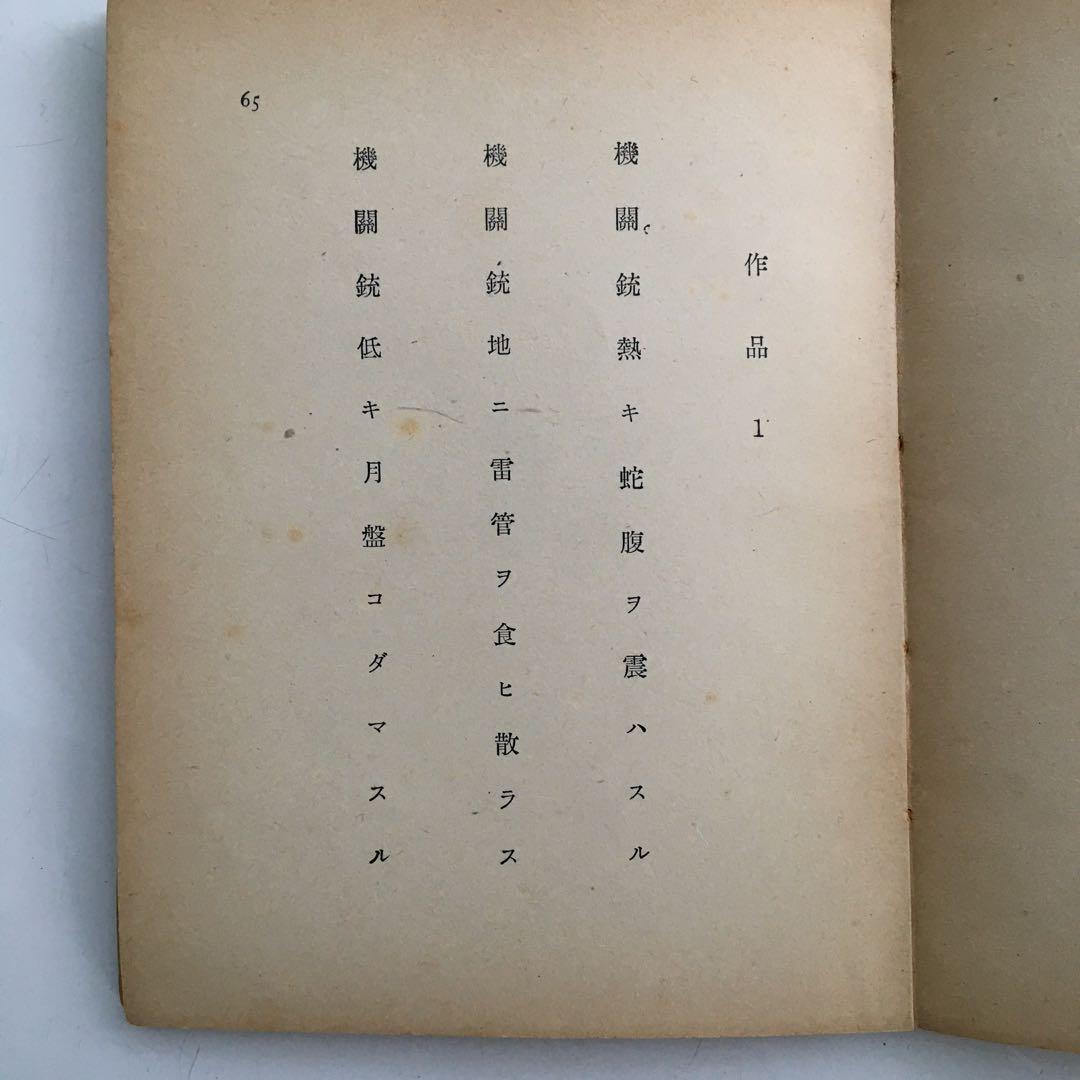 作品1
機關銃熱キ蛇腹ヲ震ハスル
機關銃地ニ雷管ヲ食ヒ散ラス
機關銃低キ月盤コダマスル
65